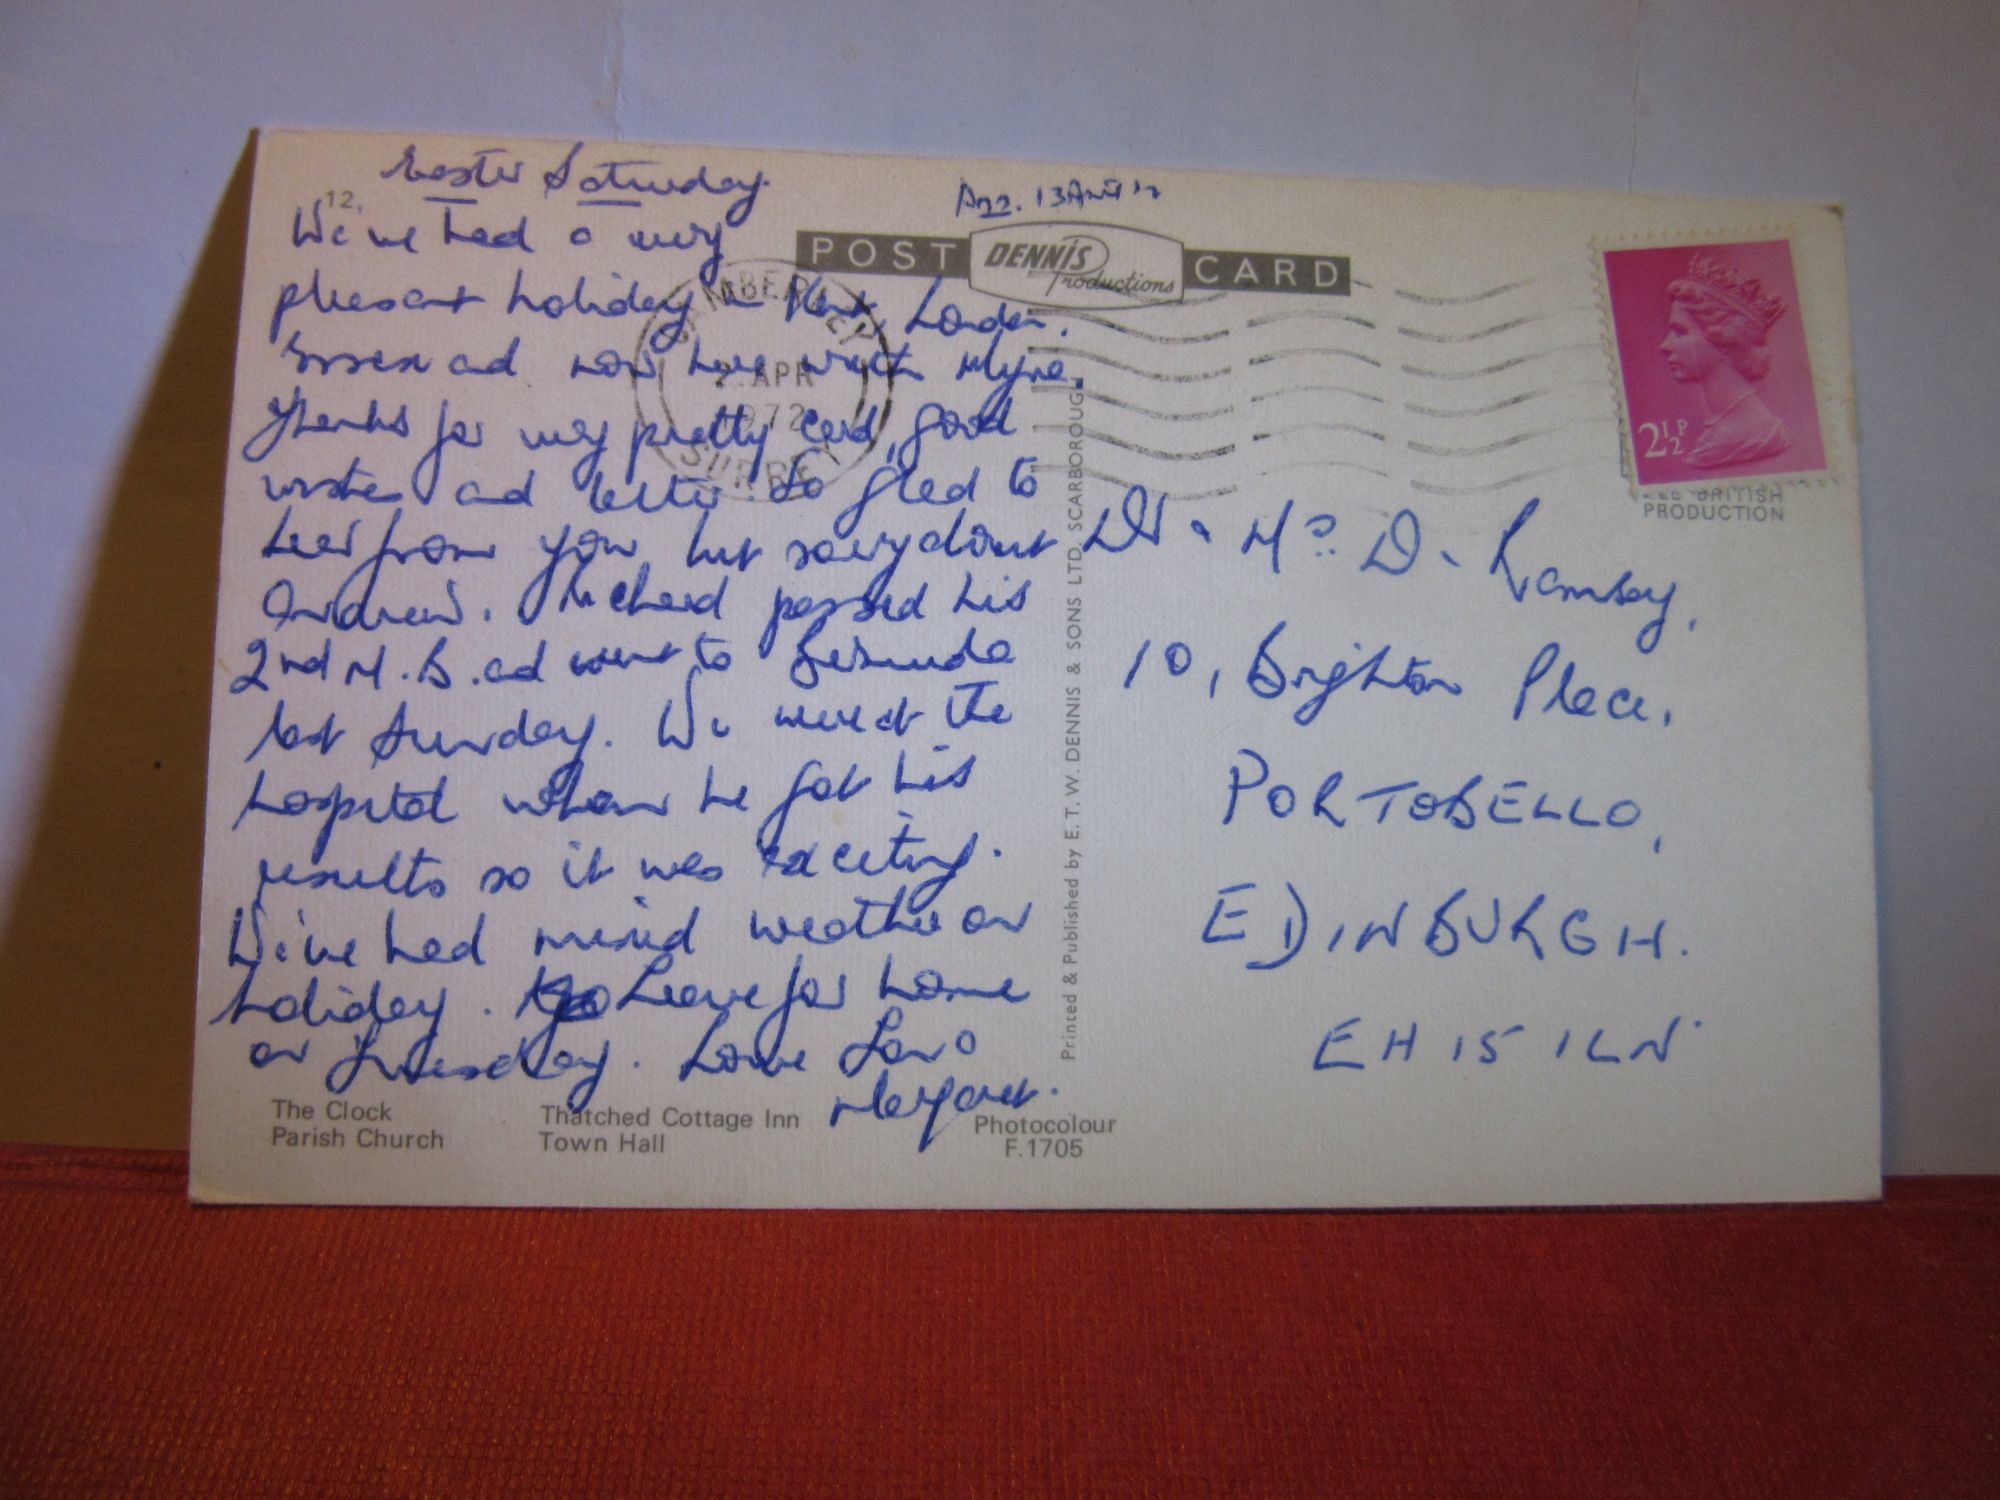 Easter Saturday.
12.
We've had a very
pleasant holiday in Kent, London,
Essex and now here with Myra.
Thanks for very pretty card, good
wishes and letter. So glad to
hear from you but sorry about
Andrew. Richard passed his
2nd M.B. and went to Bermuda
last Sunday. We were at the
hospital when he got his
results so it was exciting.
We've had mixed weather on
holiday. Leave for home
on Tuesday. Love
Margaret.
13 April
POST CARD
DENNIS
Productions
CAMBERLEY
2 APR
1972
SURREY
2½P
BRITISH
PRODUCTION
Dr. Mrs. D. Ramsay,
10, Brighton Place,
PORTOBELLO,
EDINBURGH.
EH15 1LN
Printed & Published by E. T. W. DENNIS & SONS LTD, SCARBOROUGH
The Clock
Parish Church
Thatched Cottage Inn
Town Hall
Photocolour
F.1705